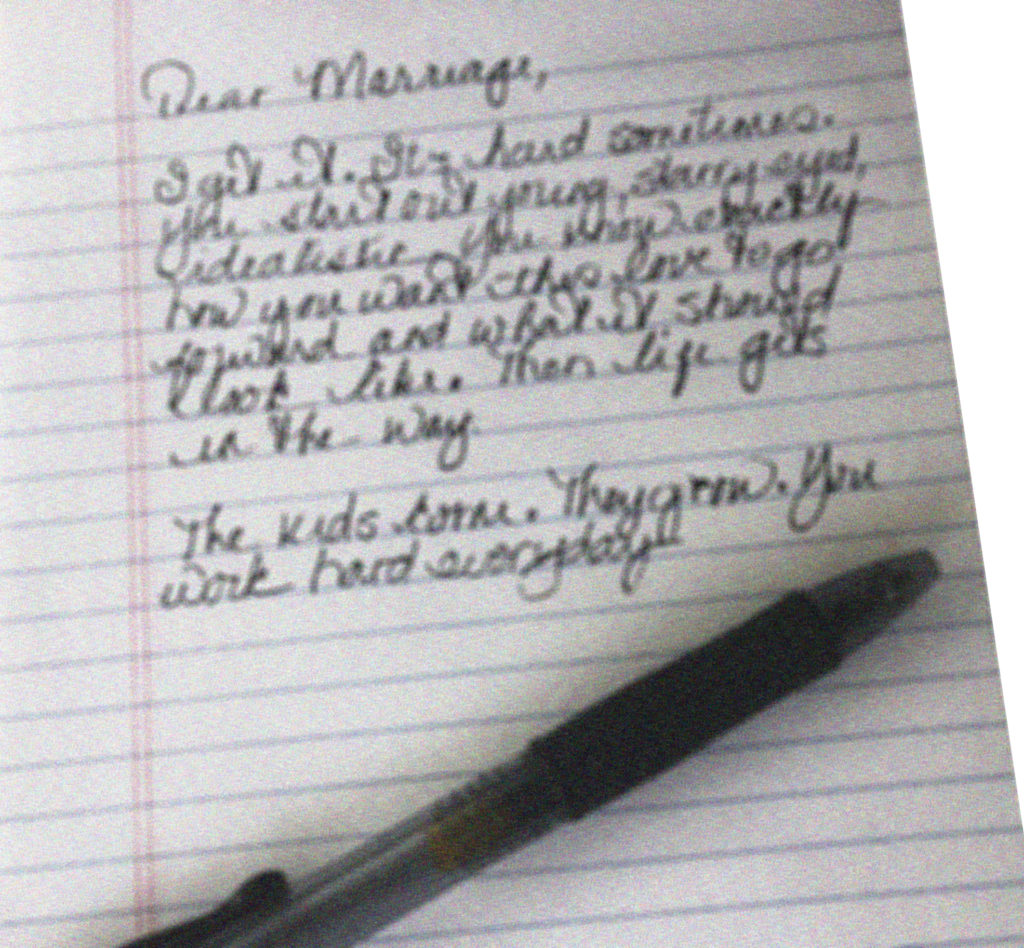 Dear Marriage,
I get it. It's hard sometimes.
You start out young, starry eyed,
idealistic. You know exactly
how you want this love to go
forward and what it should
look like. Then life gets
in the way.
The kids come. They grow. You
work hard everyday